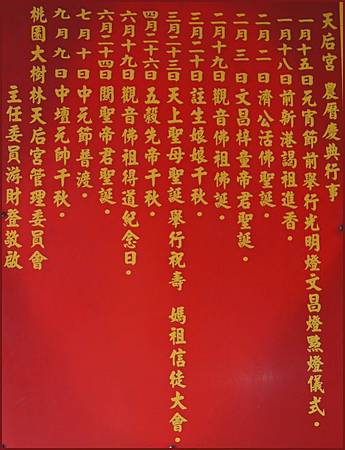 天后宮 農曆慶典行事
一月十五日元宵節前舉行光明燈文昌燈點燈儀式。
一月十八日前新港謁祖進香。
二月二日濟公活佛聖誕。
二月三日文昌梓童帝君聖誕。
二月十九日觀音佛祖佛誕。
三月二十日註生娘娘千秋。
三月二十三日天上聖母聖誕舉行祝壽 媽祖信徒大會。
四月二十六日五穀先帝千秋。
六月十九日觀音佛祖得道紀念日。
六月二十四日關聖帝君聖誕。
七月十日中元節普渡。
九月九日中壇元帥千秋。
桃園大樹林天后宮管理委員會
主任委員游財登敬啟